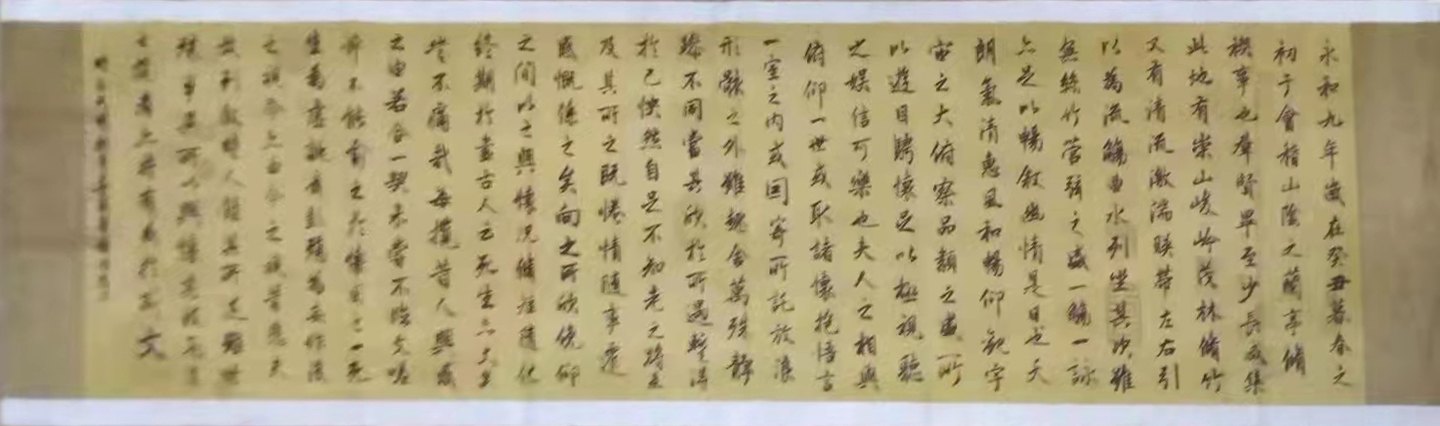 永和九年歲在癸丑暮春之
初于會稽山陰之蘭亭脩
禊事也羣賢畢至少長咸集
此地有崇山峻嶺茂林脩竹
又有清流激湍暎帶左右引
以為流觴曲水列坐其次雖
無絲竹管弦之盛一觴一詠
亦足以暢叙幽情是日也天
朗氣清惠風和暢仰觀宇
宙之大俯察品類之盛所
以遊目騁懷足以極視聽
之娛信可樂也夫人之相與
俯仰一世或取諸懷抱悟言
一室之內或因寄所託放浪
形骸之外雖趣舍萬殊靜
躁不同當其欣於所遇蹔得
於己怏然自足不知老之將至
及其所之既惓情隨事遷
感慨係之矣向之所欣俛仰
之間以之興懷況脩短隨化
終期於盡古人云死生亦大矣
豈不痛哉每攬昔人興感
之由若合一契未嘗不臨文嗟
悼不能喻之於懷固知一死
生為虛誕齊彭殤為妄作後
之視今亦由今之視昔悲夫
故列敘時人錄其所述雖世
殊事異所以興懷其致一也
之覽者亦將有感於斯文